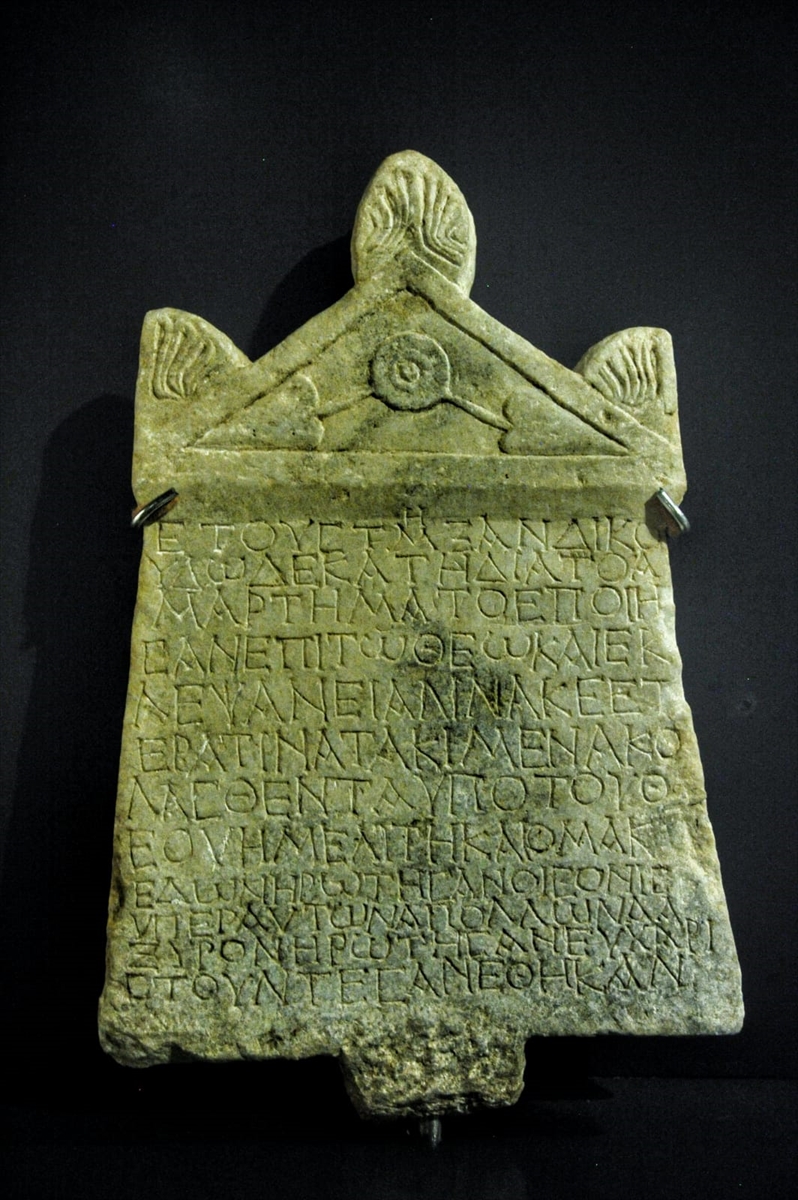 ΕΤΟΥϹΤΜΗΞΑΝΔΙΚΟ
ΥΔωΔΕΚΑΤΗΔΙΑΤΟΑ
ΜΑΡΤΗΜΑΤΟΕΠΟΙΗ
ϹΑΝΕΠΙΤωΘΕωΚΑΙΕΚ
ΛΕΨΑΝΕΙΑΝΙΝΑΚΕΕΤ
ΕΡΑΤΙΝΑΤΑΚΙΜΕΝΑΚΟ
ΛΑϹΘΕΝΤΑΥΠΟΤΟΥΘ
ΕΟΥΗΜΕΛΙΤΗΚΑΙΟΜΑΚ
ΕΔωΝΗΡωΤΗϹΑΝΟΙΓΟΝΙΕ
ΥΠΕΡΑΥΤωΝΑΠΟΛΛωΝΑΛ
ΞΥΡΟΝΗΡωΤΗϹΑΝΕΥΧΑΡΙ
ϹΤΟΥΝΤΕϹΑΝΕΘΗΚΑΝ